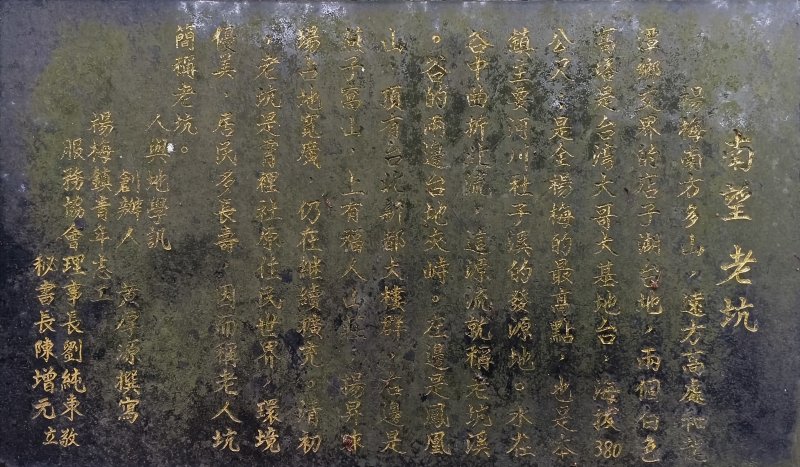 南望 老坑
楊梅南方多山，遠方高處和龍
潭鄉交界的店子湖台地，兩個白色
高塔是台灣大哥大基地台，海拔380
公尺，是全楊梅的最高點，也是本
鎮主要河川社子溪的發源地。水在
谷中曲折迂流，這源流就稱老坑溪
。谷的兩邊台地夾峙。左邊是鳳凰
山，頂有台北新都大樓群，右邊是
子窩山，上有 人山上，楊昇球
場占地寬廣，仍在繼續擴充。清初
，老坑是霄裡社原住民世界，環境
優美，居民多長壽，因而稱老人坑
簡稱老坑。
人與地學訊
創辦人 黃厚源撰寫
楊梅鎮青年志工
服務協會理事長劉純東敬
秘書長陳增元立